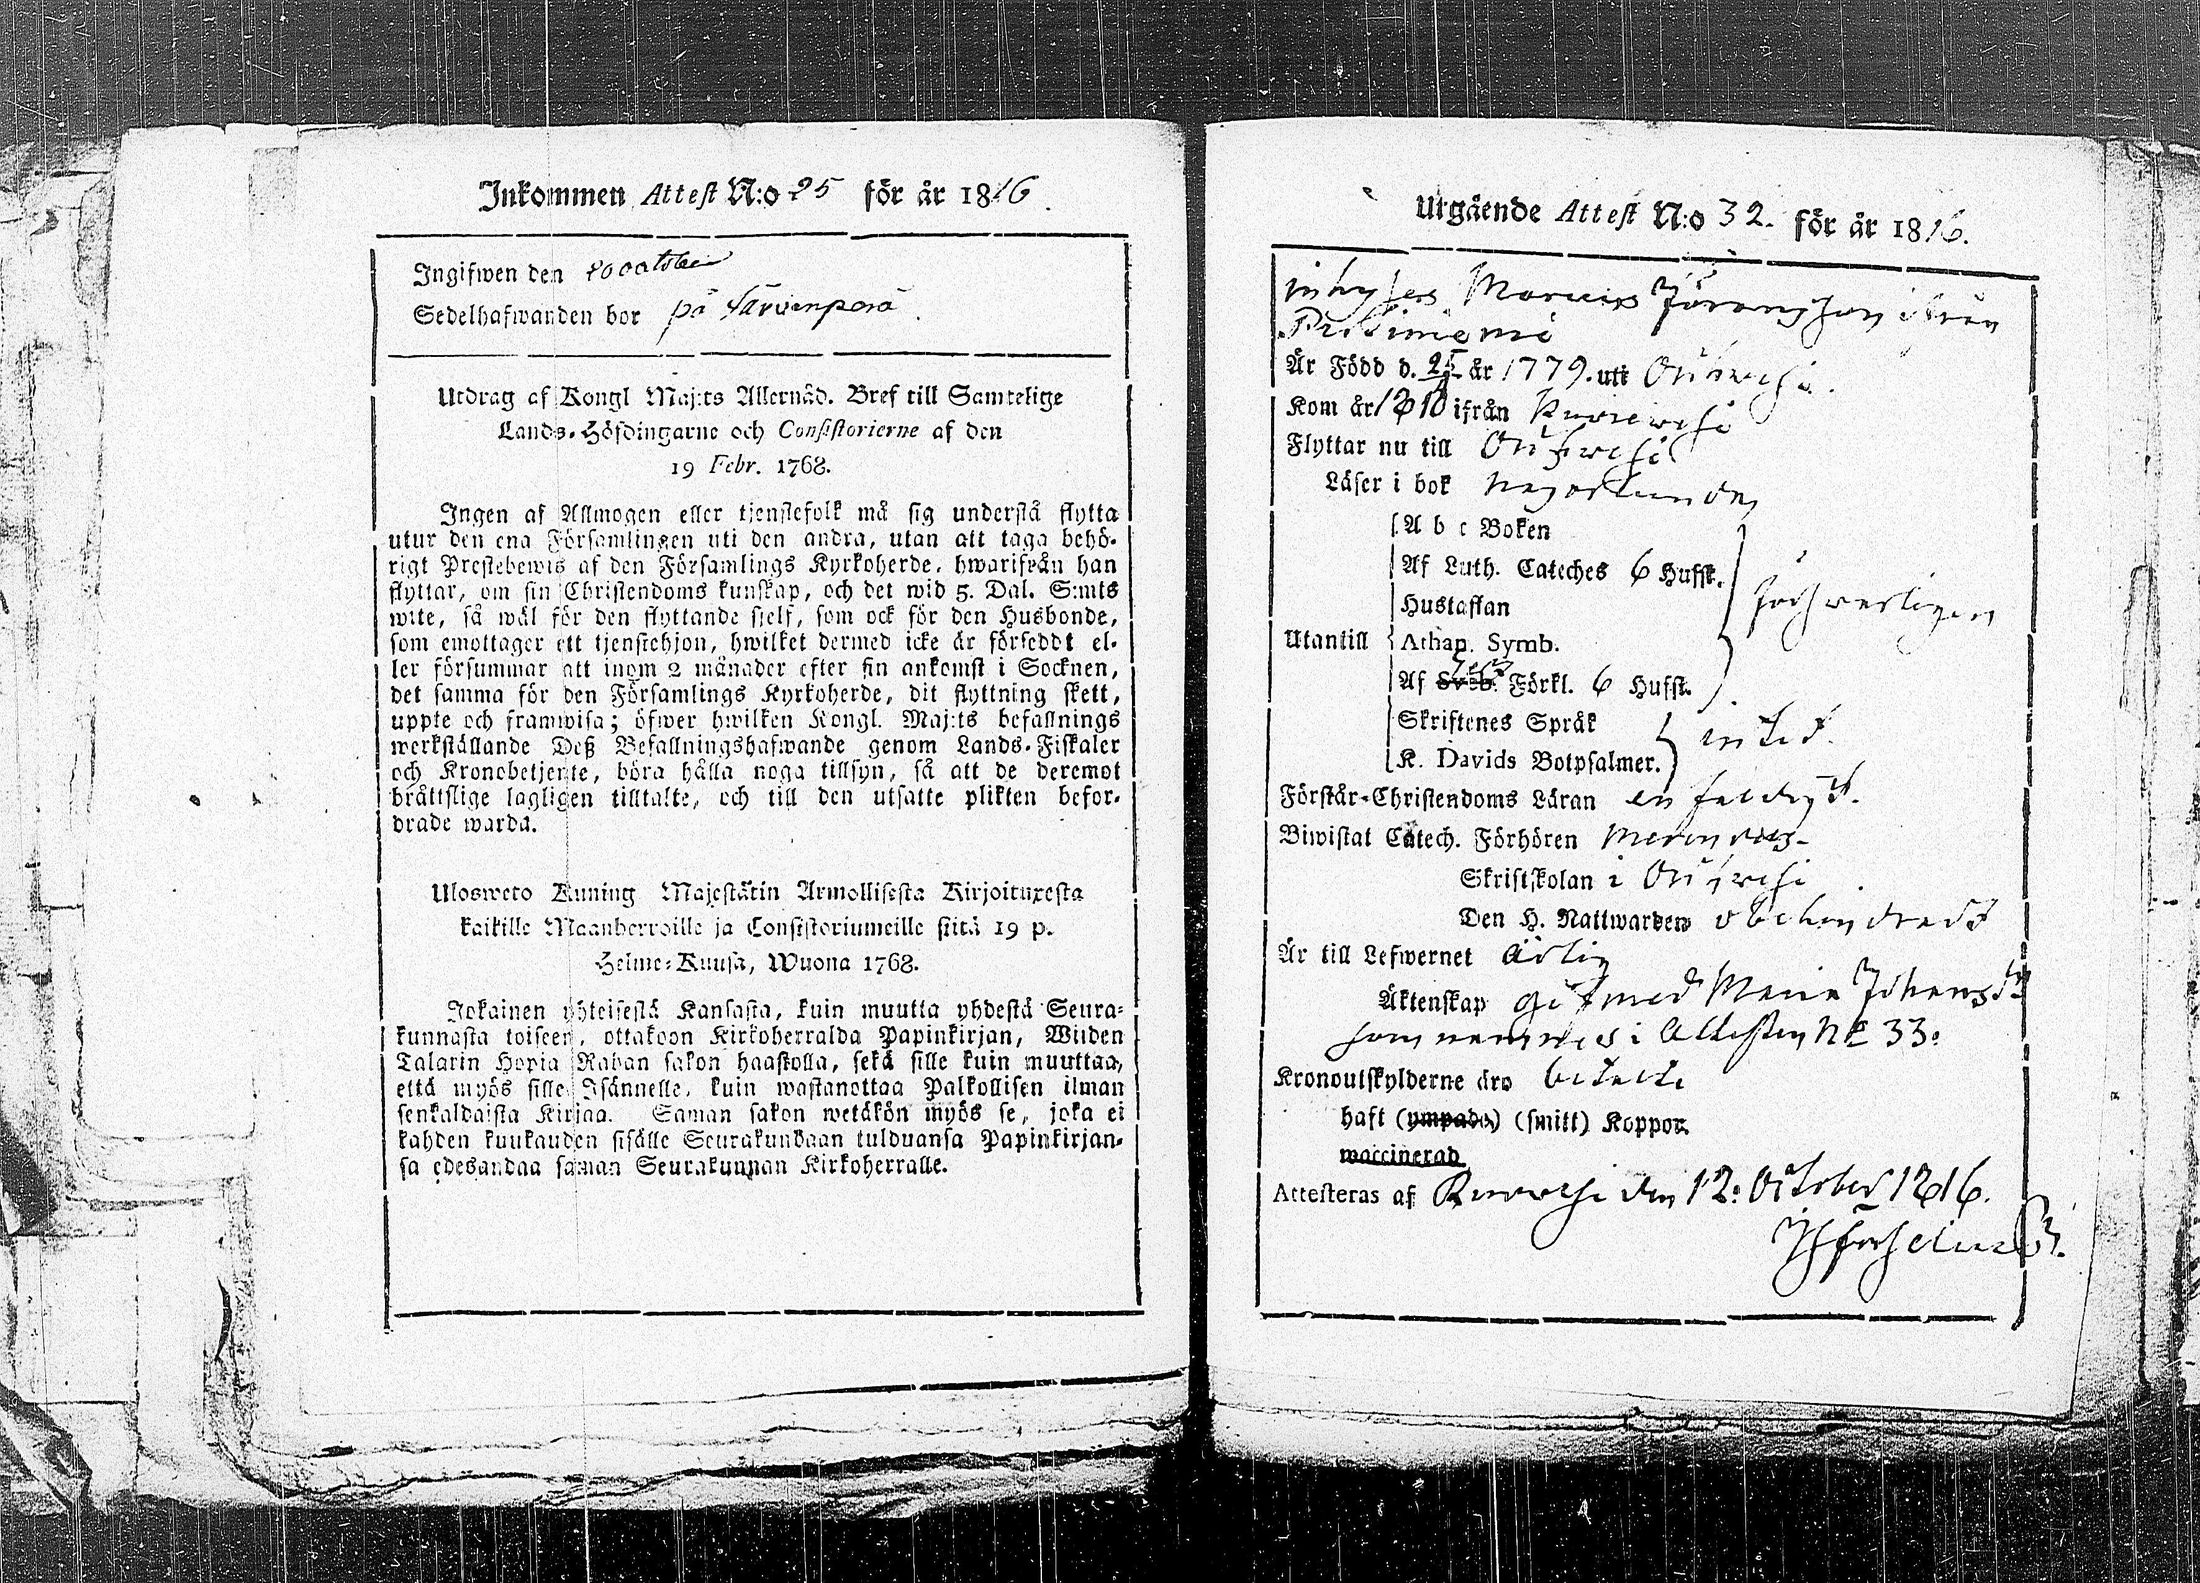 Inkommen Attest N:o 25 för år 1816
Ingifwen den 20 october
Sedelhafwanden bor på Järvenpää
Utdrag af Kongl Maj:ts Allernåd. Bref till Samtelige
Lands-Höfdingarne och Consistorierne af den
19 Febr. 1768.
Ingen af Allmogen eller tjenstefolk må sig understå flytta
utur den ena Församlingen uti den andra, utan att taga behö-
rigt Prestebewis af den Församlings Kyrkoherde, hwarifrån han
flyttar, om sin Christendoms kunskap, och det wid 5. Dal. S:mts
wite, så wäl för den flyttande sjelf, som ock för den Husbonde,
som emottager ett tjenstehjon, hwilket dermed icke är förseddt el-
ler försummar att inom 2 månader efter sin ankomst i Socknen,
det samma för den Församlings Kyrkoherde, dit flyttning skett,
uppte och framwisa; öfwer hwilken Kongl. Maj:ts befallnings
werkställande Deß Befallningshafwande genom Lands-Fiskaler
och Kronobetjente, böra hålla noga tillsyn, så att de deremot
bråttslige lagligen tilltalte, och till den utsatte plikten befor-
drade warda.
Ulosweto Kuning Majestätin Armollisesta Kirjoituxesta
kaikille Maanherroille ja Consistoriumeille siitä 19 p.
Helme-Kuusa, Wuona 1768.
Jokainen yhteisestä Kansasta, kuin muutta yhdestä Seura-
kunnasta toiseen, ottakoon Kirkoherralda Papinkirjan, Wiiden
Talarin Hopia Rahan sakon haastolla, sekä sille kuin muuttaa,
että myös sille Isännelle, kuin wastanottaa Palkollisen ilman
senkaldaista Kirjaa. Saman sakon wetäkön myös se, joka ei
kahden kuukauden sisälle Seurakundaan tulduansa Papinkirjan-
sa edesandaa saman Seurakunnan Kirkoherralle.
Utgående Attest N:o 32. för år 1816.
inhyses Marcus Jöransson ifrån
Är Född d. 25 år 1779. uti
Kom år 1810 ifrån Kuorewesi
Flyttar nu till
Läser i bok någorlunda
A b c Boken
Af Luth. Cateches 6 Hufst.
Hustaflan
Utantill Athan. Symb.
Af Sveb. Förkl. 6 Hufst.
Skriftenes Språk
K. Davids Botpsalmer. intet.
Förstår Christendoms Läran enfaldigt.
Biwistat Catech. Förhören
Skriftskolan i
Den H. Nattwarden obehindradt
Är till Lefwernet ärlig
Äktenskap gift med Maria Johansdr
som nämnes i Attesten No 33.
Kronoutskylderne äro betalte
haft (ympade) (smitt) Koppor.
waccinerad
Attesteras af Kuorewesi den 12. October 1816.